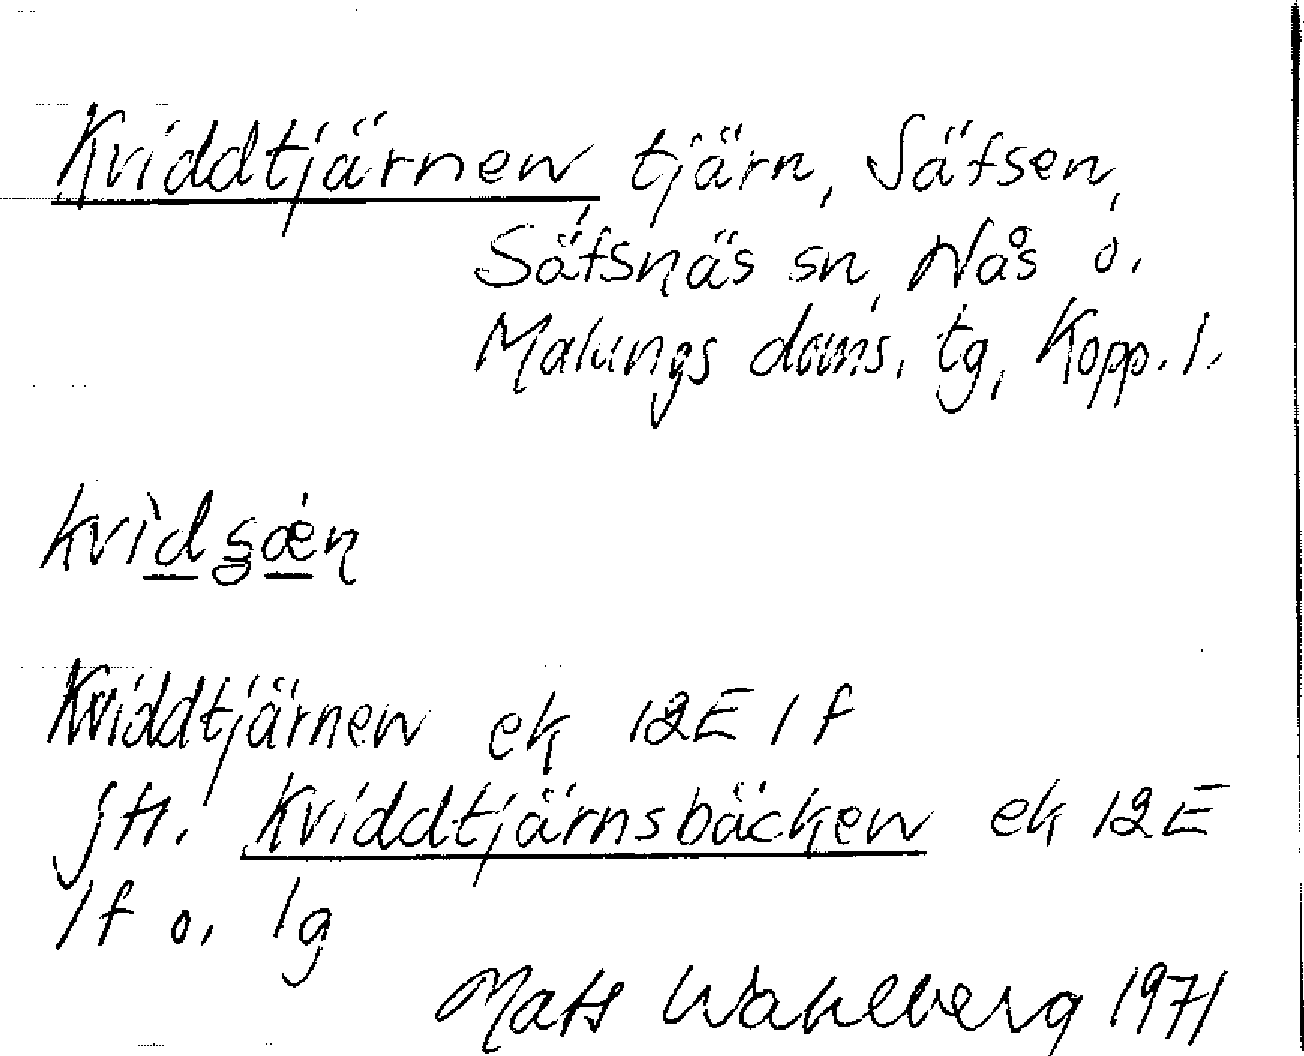 Kviddtjärnen, tjärn, Säfsen,
Säfsnäs sn, Nås o.
Malungs doms. tg, Kopp. l.
Kviddtjärnen ek 12E 1 f
jfr. Kviddtjärnsbäcken ek 12E
1f o. 1g
Mats Wahlberg 1971